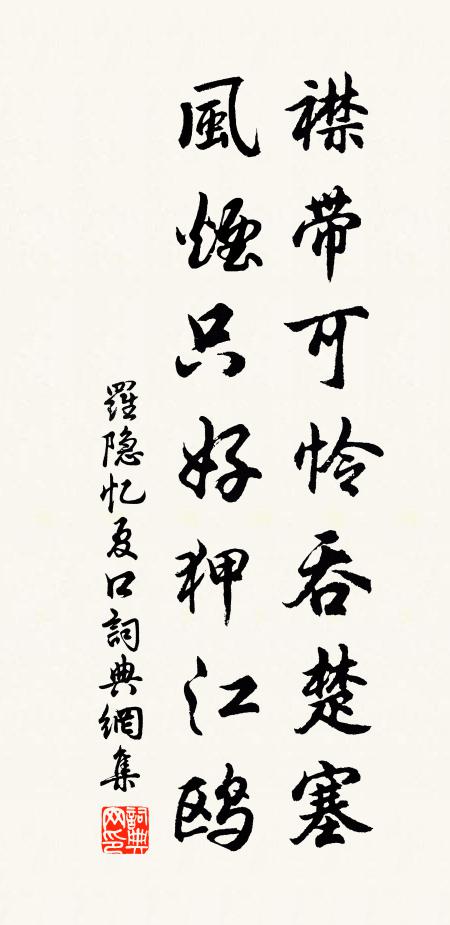 襟带可怜吞楚塞
風煙只好狎江鸥
羅隐忆夏口詞典網集
詞典网印